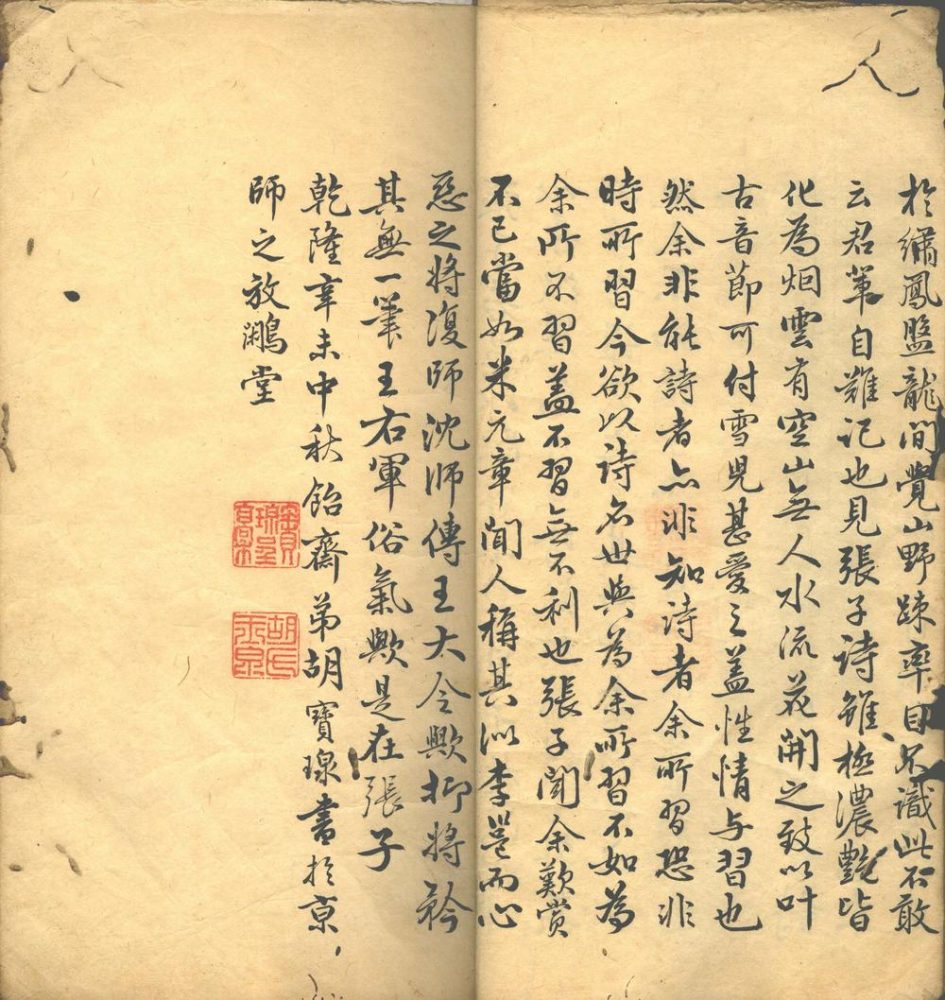 於繡鳳盤龍間覺山野踈率目不識此不敢
云君輩自難記也見張子詩雖極濃艷皆
化為烟雲有空山無人水流花開之致以叶
古音節可付雪児甚愛之蓋性情与習也
然余非能詩者亦非知詩者余所習恐非
時所習今欲以詩名世與為余所習不如為
余所不習蓋不習無不利也張子聞余歎賞
不已當如米元章聞人稱其似李邕而心
惡之將復師沈師傳王大令歟抑將矜
其無一筆王右軍俗氣歟是在張子
乾隆辛未中秋飴齋弟胡寶瑔書於京
師之放鷴堂
胡氏